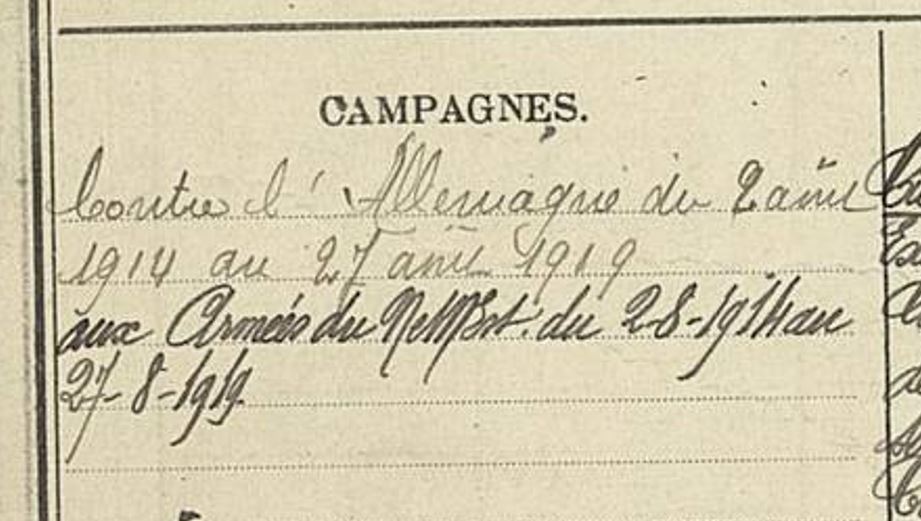 CAMPAGNES.
Contre l'Allemagne du 2 août
1914 au 27 août 1919
aux Armées du N et N Est. du 2-8-1914 au
27-8-1919